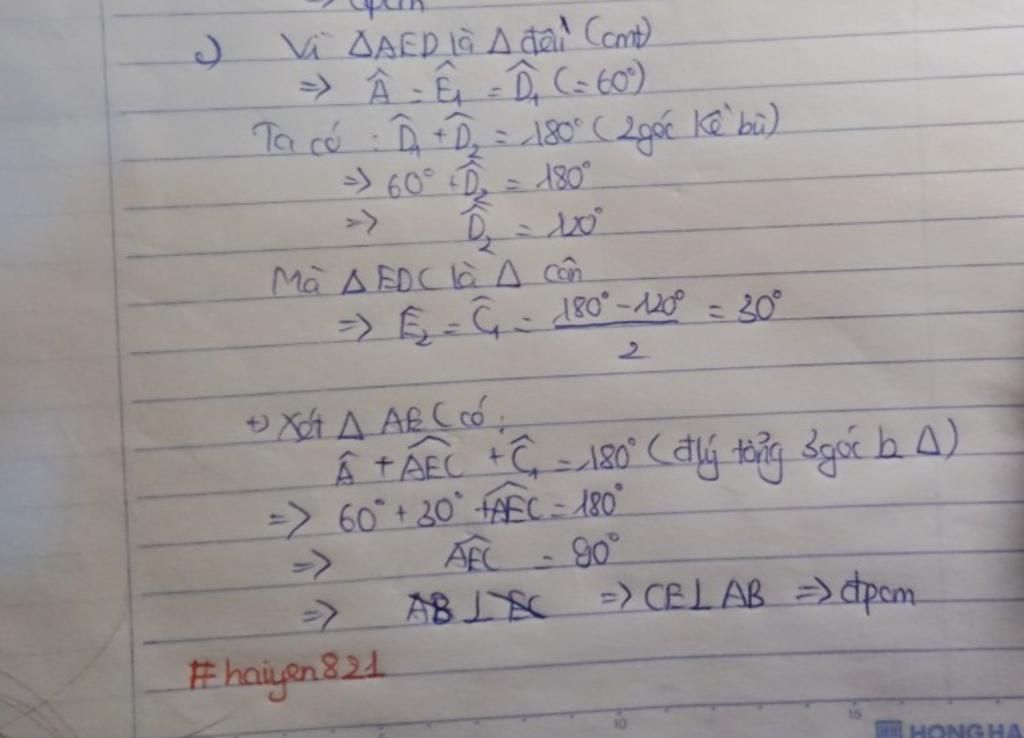 ⇒ đpcm
c) Vì ΔAED là Δ đều (cmt)
⇒ Â = Ê₁ = D̂₁ (= 60°)
Ta có : D̂₁ + D̂₂ = 180° (2 góc kề bù)
⇒ 60° + D̂₂ = 180°
⇒ D̂₂ = 120°
Mà ΔEDC là Δ cân
⇒ Ê₂ = Ĉ₁ = (180° - 120°)/2 = 30°
+) Xét Δ AEC có:
Â + AEC + Ĉ₁ = 180° (đlý tổng 3 góc Δ)
⇒ 60° + 30° + AEC = 180°
⇒ AEC = 90°
⇒ AB ⊥ EC ⇒ CE ⊥ AB ⇒ đpcm
#haiyen821
10 15
HONG HA